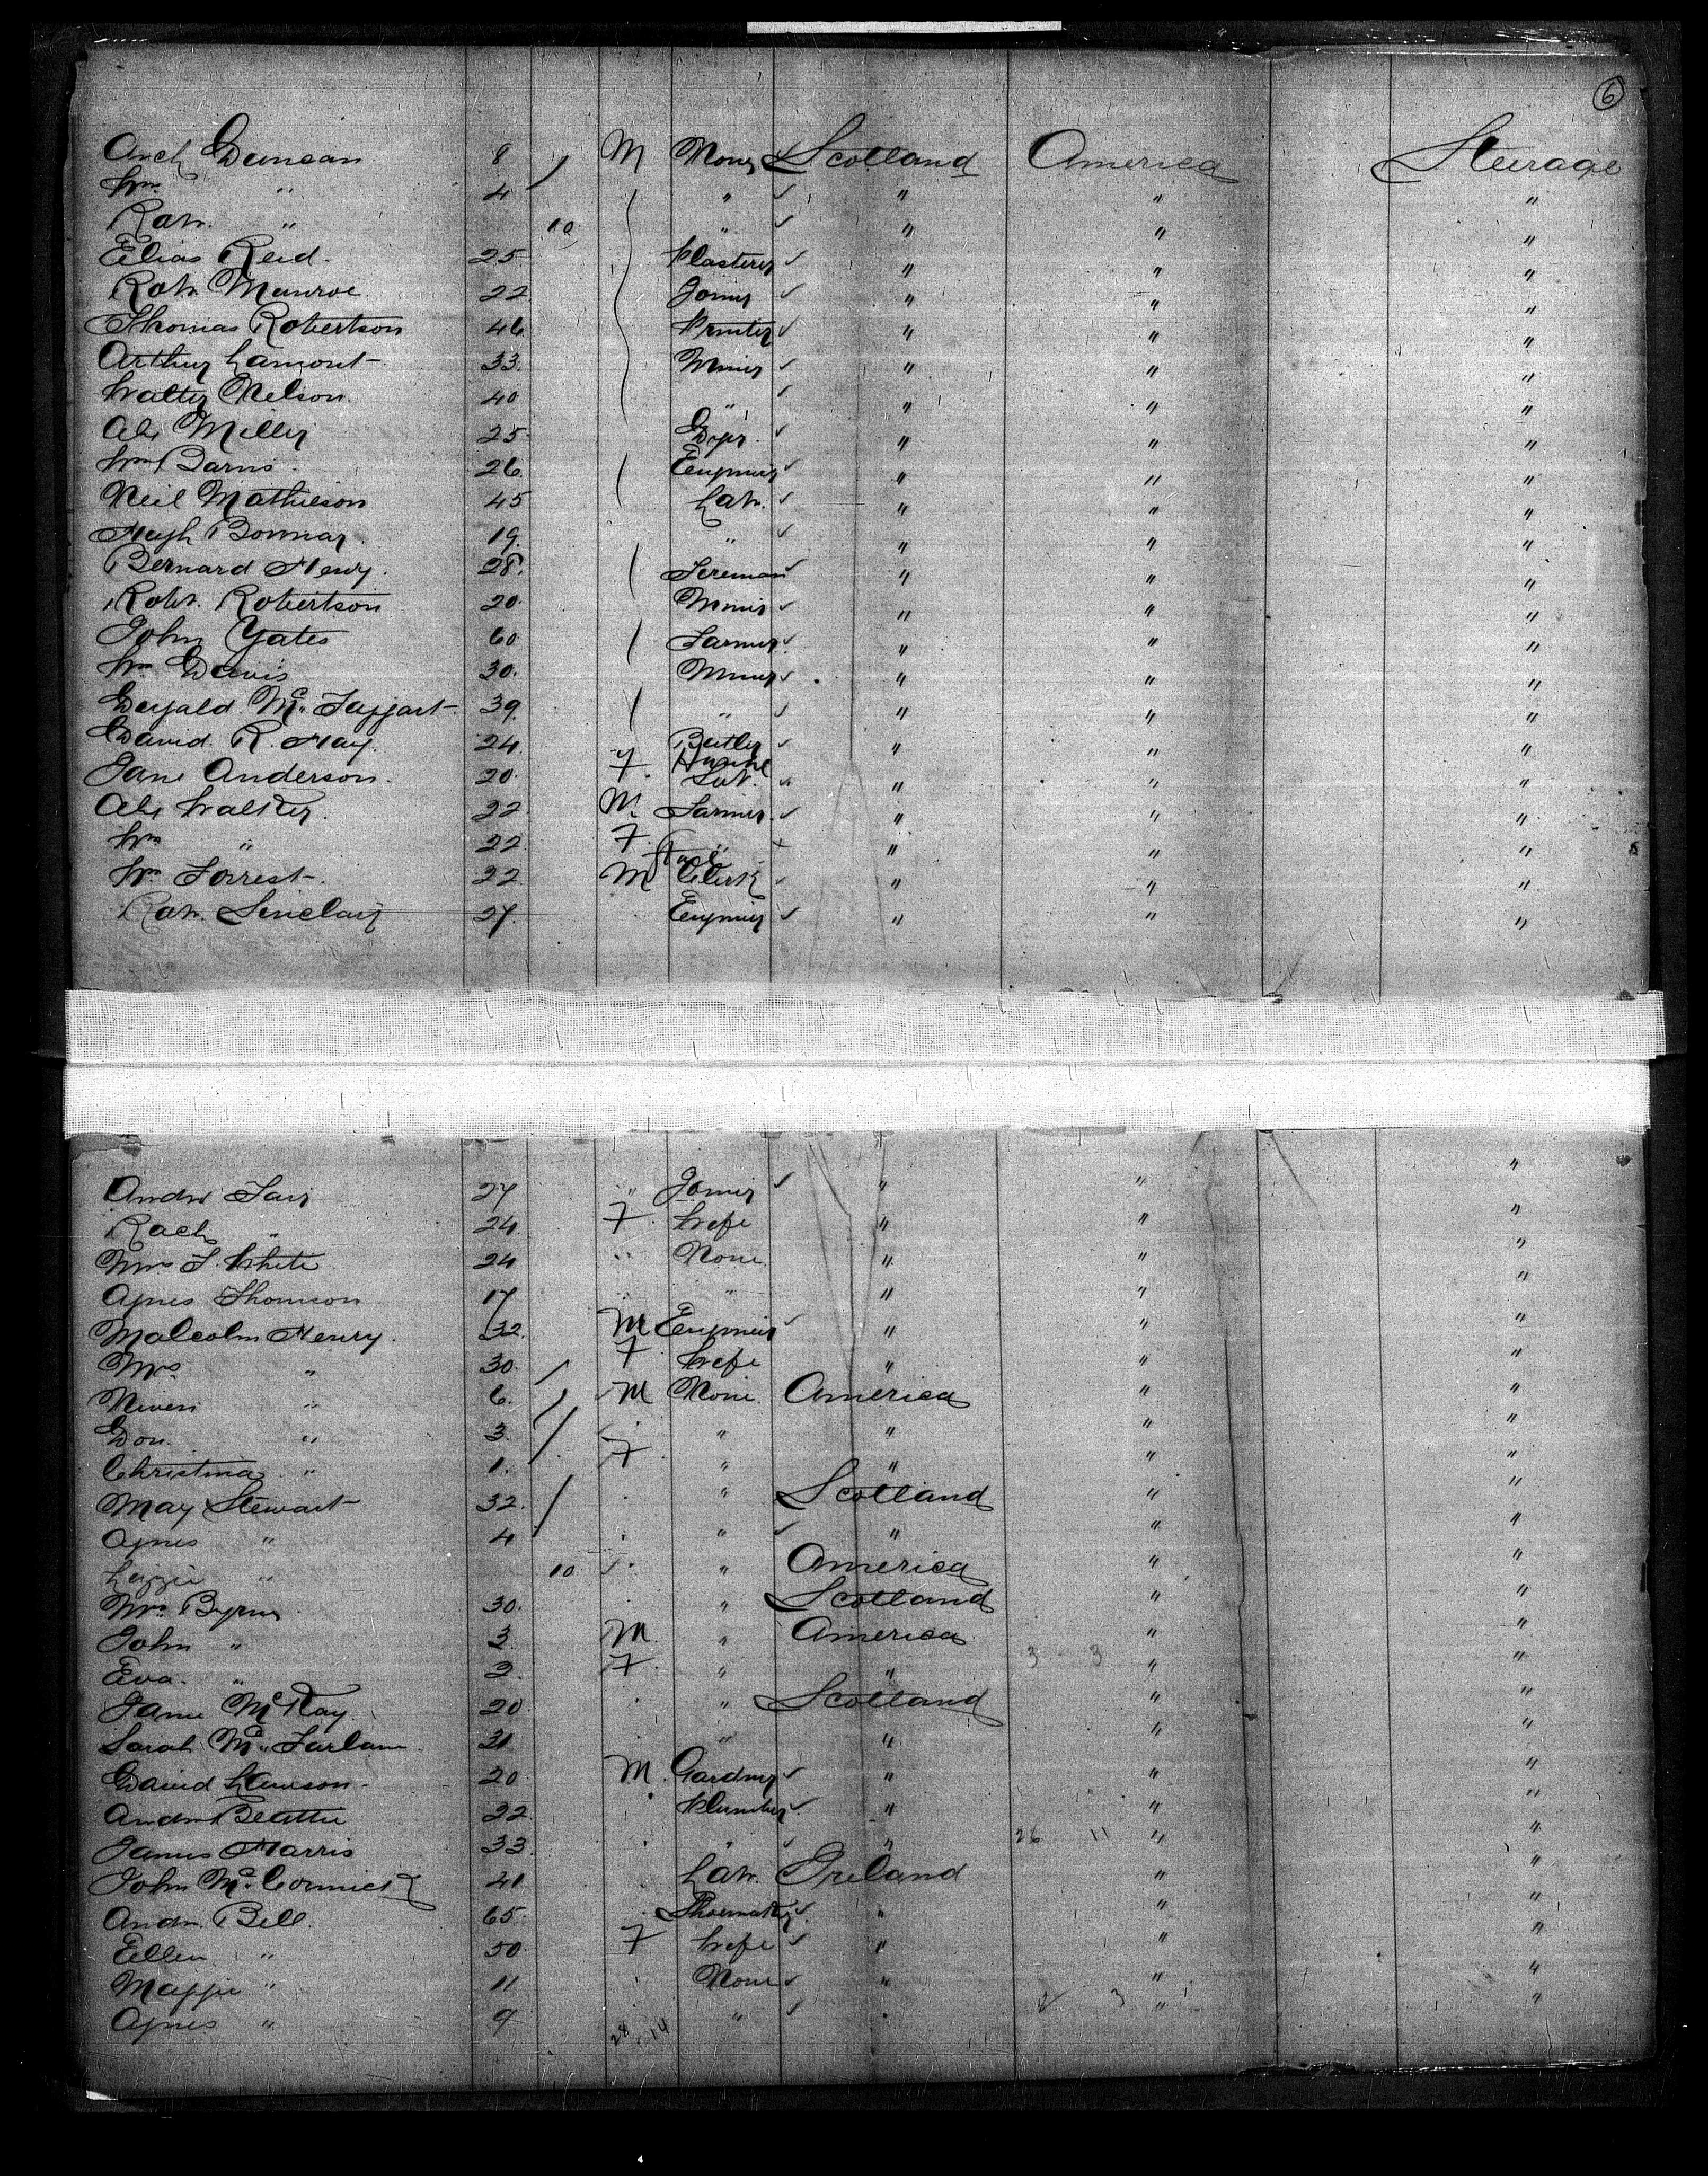 6
Arch Duncan 8 M None Scotland America Steerage
Wm " 4 " " " "
Robt. " 10 " " " "
Elias Reid. 25 Plasterer " " "
Robt. Munroe. 22 Joiner " " "
Thomas Robertson 46 Printer " " "
Arthur Lamont 33. Miner " " "
Walter Nelson. 40 " " " "
Alex Miller 25. " " "
Wm Barns. 26. Engineer " " "
Neil Mathieson 45 Labr. " " "
Hugh Bonnar. 19. " " " "
Bernard Henry. 28. Fireman " " "
Robt. Robertson 20. Miner " " "
John Yates 60 Farmer. " " "
Wm Davis 30. Miner " " "
Dugald McTaggart. 39. " " " "
David R. Hay. 24. Butler " " "
Jane Anderson. 20. F. " " "
Alex Walker. 22. M. Farmer. " " "
Wm " 22. F. " " " "
Wm Forrest. 22. M Clerk " " "
Robt. Sinclair 27. Engineer " " "
"
Andw 27 " Joiner " " "
Rach " 24. F. Wife " " "
Mrs J. White 24 " None. " " "
Agnes Thomson 17 " " " " "
Malcolm Henry. 32. M Engineer " " "
Mrs " 30. F. Wife " " "
Niven " 6. M None. America " "
Don. " 3. " " " " "
Christina " 1. F " " " "
May Stewart 32. " " Scotland " "
Agnes " 4 " " " " "
Lizzie " 10 " " America " "
Mrs Byrne 30. " " Scotland " "
John " 3. M. " America " "
Eva. " 2. F. " " 3 - 3 " "
Jane McKay. 20. " " Scotland " "
Sarah McFarlane. 31 " " " " "
David Lawson. 20. M. Gardner " " "
Andw Beattie 22. " Plumber " " "
James Harris 33. " " " 26 11 " "
John McCormick 41 " Labr. Ireland " "
Andw. Bell. 65. " Shoemaker " " "
Ellen " 50. F Wife " " "
Maggie " 11 " None " " "
Agnes " 9 28 14 " " 2 3 " "